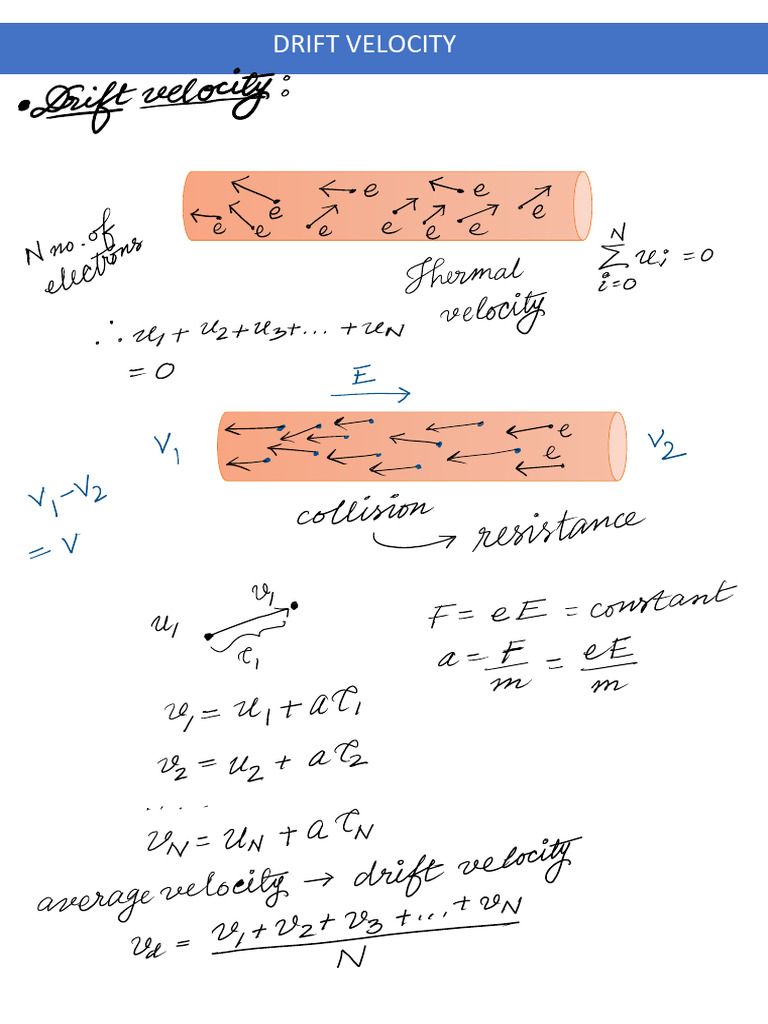 DRIFT VELOCITY
• Drift velocity:
e e
e e e e e e e e
N no. of
electrons
Thermal
velocity
N
Σ uᵢ = 0
i=0
∴ u₁ + u₂ + u₃ + ... + u_N
= 0
E
V₁
e
e
V₂
V₁ - V₂
= V
collision
resistance
u₁ v₁
τ₁
F = eE = constant
a = F/m = eE/m
v₁ = u₁ + aτ₁
v₂ = u₂ + aτ₂
.....
v_N = u_N + aτ_N
average velocity → drift velocity
v_d = (v₁ + v₂ + v₃ + ... + v_N)/N